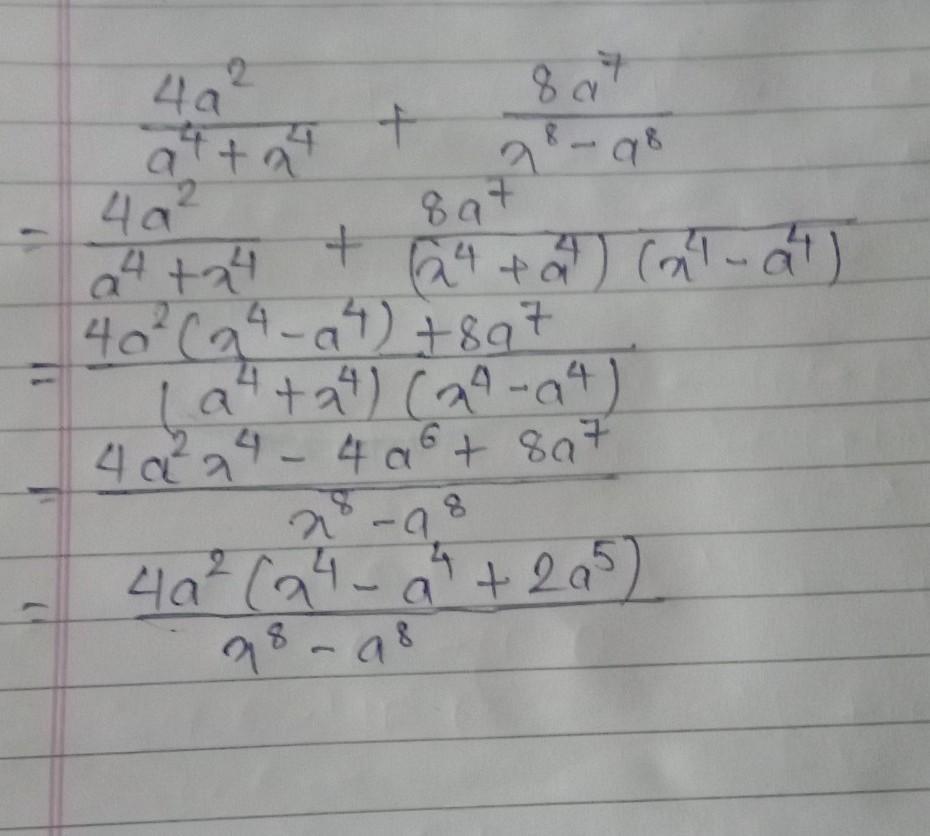 4a²/(a⁴+x⁴) + 8a⁷/(x⁸-a⁸)
= 4a²/(a⁴+x⁴) + 8a⁷/((x⁴+a⁴)(x⁴-a⁴))
= (4a²(x⁴-a⁴)+8a⁷)/((a⁴+x⁴)(x⁴-a⁴))
= (4a²x⁴-4a⁶+8a⁷)/(x⁸-a⁸)
= 4a²(x⁴-a⁴+2a⁵)/(x⁸-a⁸)